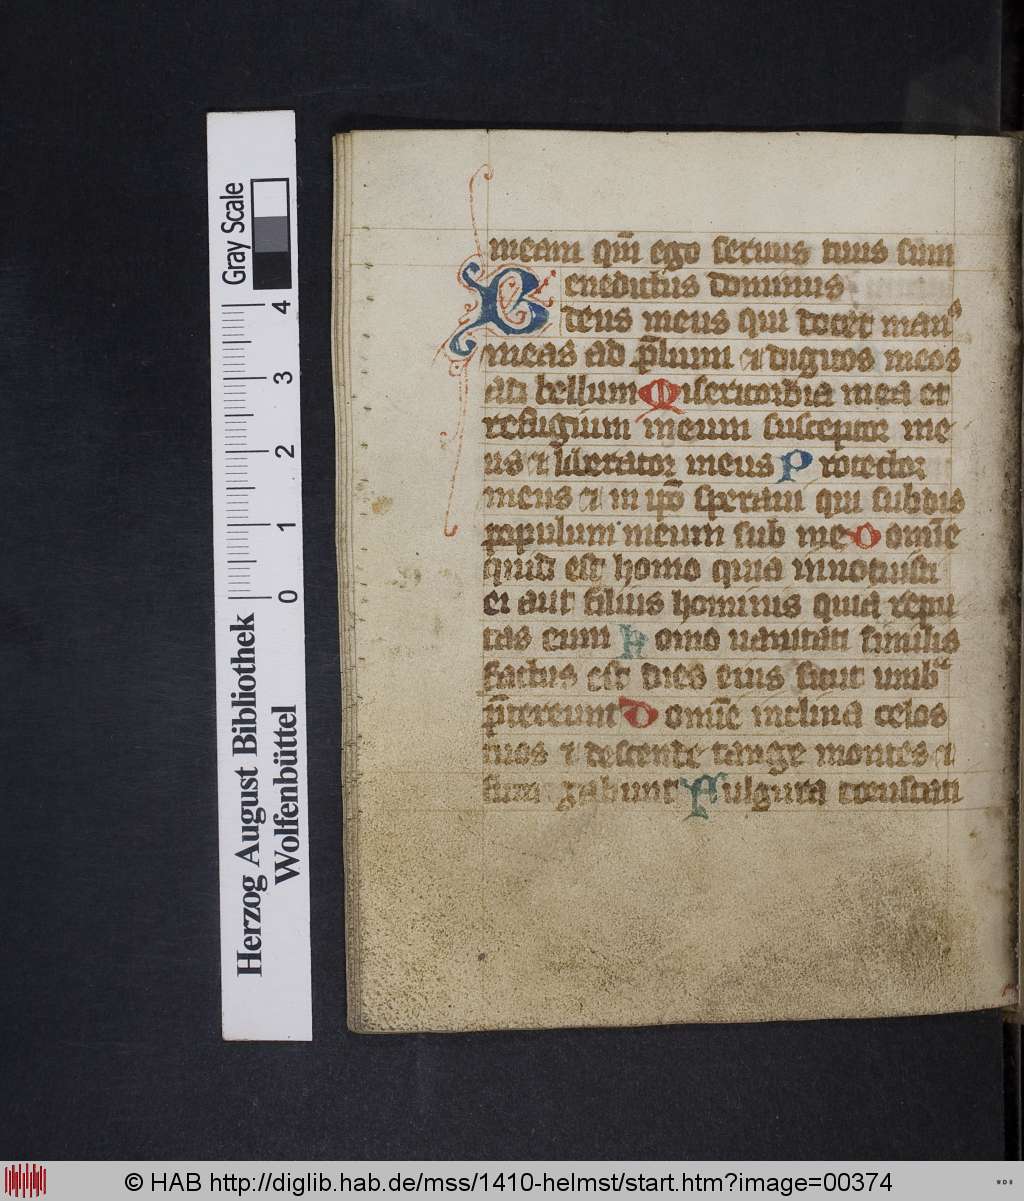 meam qm̄ ego seruus tuus sum
Benedictus dominus
deus meus qui docet manꝰ
meas ad p̄lium ⁊ digitos meos
ad bellum Misericordia mea et
refugium meum susceptor me
us ⁊ liberator meus Protector
meus ⁊ in ip̄o speraui qui subdis
populum meum sub me Domīe
quid est homo quia innotuisti
ei aut filius hominis quia repu
tas eum Homo uanitati similis
factus est dies eius sicut umbᵃ
p̄tereunt Domīe inclina celos
tuos ⁊ descende tange montes ⁊
fumigabunt Fulgura coruscati
Gray Scale
0 1 2 3 4
Herzog August Bibliothek
Wolfenbüttel
© HAB http://diglib.hab.de/mss/1410-helmst/start.htm?image=00374
WDB